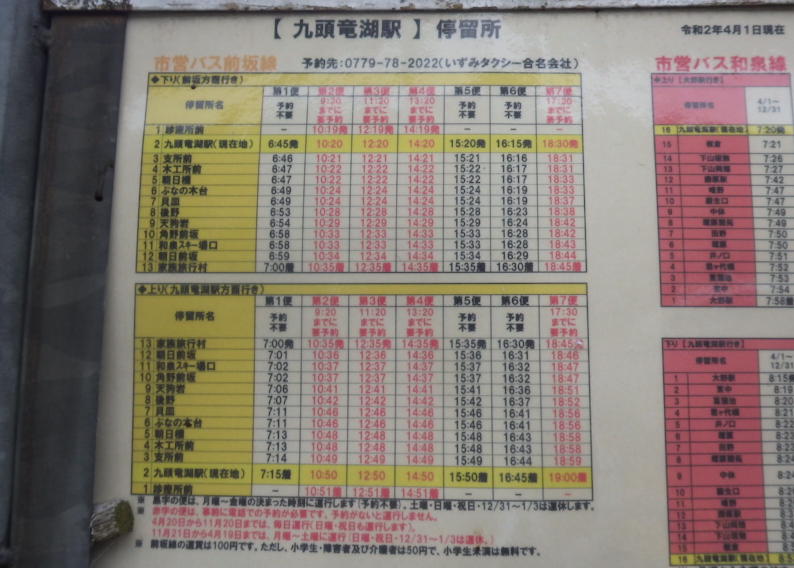 【 九頭竜湖駅 】 停留所
令和2年4月1日現在
市営バス前坂線 予約先:0779-78-2022(いずみタクシー合名会社)
◆下り(前坂方面行き)
停留所名 第1便 第2便 第3便 第4便 第5便 第6便 第7便
予約不要 9:20までに要予約 11:20までに要予約 13:20までに要予約 予約不要 予約不要 17:30までに要予約
1 診療所前 － 10:19発 12:19発 14:19発 － － －
2 九頭竜湖駅(現在地) 6:45発 10:20 12:20 14:20 15:20発 16:15発 18:30発
3 支所前 6:46 10:21 12:21 14:21 15:21 16:16 18:31
4 木工所前 6:47 10:22 12:22 14:22 15:22 16:17 18:31
5 朝日橋 6:47 10:22 12:22 14:22 15:22 16:17 18:33
6 ぶなの木台 6:49 10:24 12:24 14:24 15:24 16:19 18:33
7 貝皿 6:49 10:24 12:24 14:24 15:24 16:19 18:37
8 後野 6:53 10:28 12:28 14:28 15:28 16:23 18:38
9 天狗岩 6:54 10:29 12:29 14:29 15:29 16:24 18:42
10 角野前坂 6:58 10:33 12:33 14:33 15:33 16:28 18:42
11 和泉スキー場口 6:58 10:33 12:33 14:33 15:33 16:28 18:43
12 朝日前坂 6:59 10:34 12:34 14:34 15:34 16:29 18:44
13 家族旅行村 7:00着 10:35着 12:35着 14:35着 15:35着 16:30着 18:45着
◆上り(九頭竜湖駅方面行き)
停留所名 第1便 第2便 第3便 第4便 第5便 第6便 第7便
予約不要 9:20までに要予約 11:20までに要予約 13:20までに要予約 予約不要 予約不要 17:30までに要予約
13 家族旅行村 7:00発 10:35発 12:35発 14:35発 15:35発 16:30発 18:45発
12 朝日前坂 7:01 10:36 12:36 14:36 15:36 16:31 18:46
11 和泉スキー場口 7:02 10:37 12:37 14:37 15:37 16:32 18:47
10 角野前坂 7:02 10:37 12:37 14:37 15:37 16:32 18:47
9 天狗岩 7:06 10:41 12:41 14:41 15:41 16:36 18:51
8 後野 7:07 10:42 12:42 14:42 15:42 16:37 18:52
7 貝皿 7:11 10:46 12:46 14:46 15:46 16:41 18:56
6 ぶなの木台 7:11 10:46 12:46 14:46 15:46 16:41 18:56
5 朝日橋 7:13 10:48 12:48 14:48 15:48 16:43 18:58
4 木工所前 7:13 10:48 12:48 14:48 15:48 16:43 18:58
3 支所前 7:14 10:49 12:49 14:49 15:49 16:44 18:59
2 九頭竜湖駅(現在地) 7:15着 10:50 12:50 14:50 15:50着 16:45着 19:00着
1 診療所前 － 10:51着 12:51着 14:51着 － － －
※ 黒字の便は、月曜～金曜の決まった時刻に運行します(予約不要)。土曜・日曜・祝日・12/31～1/3は運休します。
※ 赤字の便は、事前に電話での予約が必要です。予約がないと運行しません。
4月20日から11月20日までは、毎日運行(日曜・祝日も運行します)。
11月21日から4月19日までは、月曜～土曜に運行(日曜・祝日・12/31～1/3は運休。)
※ 前坂線の運賃は100円です。ただし、小学生・障害者及び介護者は50円で、小学生未満は無料です。
市営バス和泉線
◆上り【大野駅行き】
停留所名 4/1～12/31
16 九頭竜湖駅(現在地) 7:20発
15 朝倉 7:21
14 下山 7:26
13 下山 7:27
12 7:42
11 7:47
10 7:47
9 中休 7:49
8 7:49
7 7:50
6 7:50
5 井ノ口 7:51
4 7:52
3 7:53
2 7:54
1 大野駅 7:58着
下り【九頭竜湖駅行き】
停留所名 4/1～12/31
1 大野駅 8:15発
2 8:19
3 8:20
4 8:21
5 井ノ口 8:22
6 8:23
7 8:23
8
9 中休 8:24
16 九頭竜湖駅(現在地)